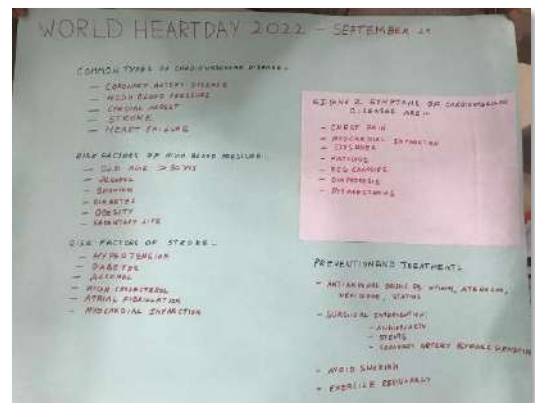 WORLD HEARTDAY 2022 - SEPTEMBER 29
COMMON TYPES OF CARDIOVASCULAR DISEASE -
- CORONARY ARTERY DISEASE
- HIGH BLOOD PRESSURE
- CARDIAC ARREST
- STROKE
- HEART FAILURE
RISK FACTORS OF HIGH BLOOD PRESSURE
- OLD AGE >
- ALCOHOL
- SMOKING
- DIABETES
- OBESITY
- SEDENTARY LIFE
RISK FACTORS OF STROKE -
- HYPERTENSION
- DIABETES
- ALCOHOL
- HIGH CHOLESTEROL
- ATRIAL FIBRILLATION
- MYOCARDIAL INFARCTION
SIGNS & SYMPTOMS OF CARDIOVASCULAR
DISEASE ARE -
- CHEST PAIN
- MYOCARDIAL INFARCTION
- DYSPNEA
- FATIGUE
- ECG CHANGES
- DIAPHORESIS
PREVENTION AND TREATMENT -
STATINS
- SURGICAL INTERVENTION:
- ANGIOPLASTY
- STENTS
- CORONARY ARTERY BYPASS
- AVOID SMOKING
- EXERCISE REGULARLY